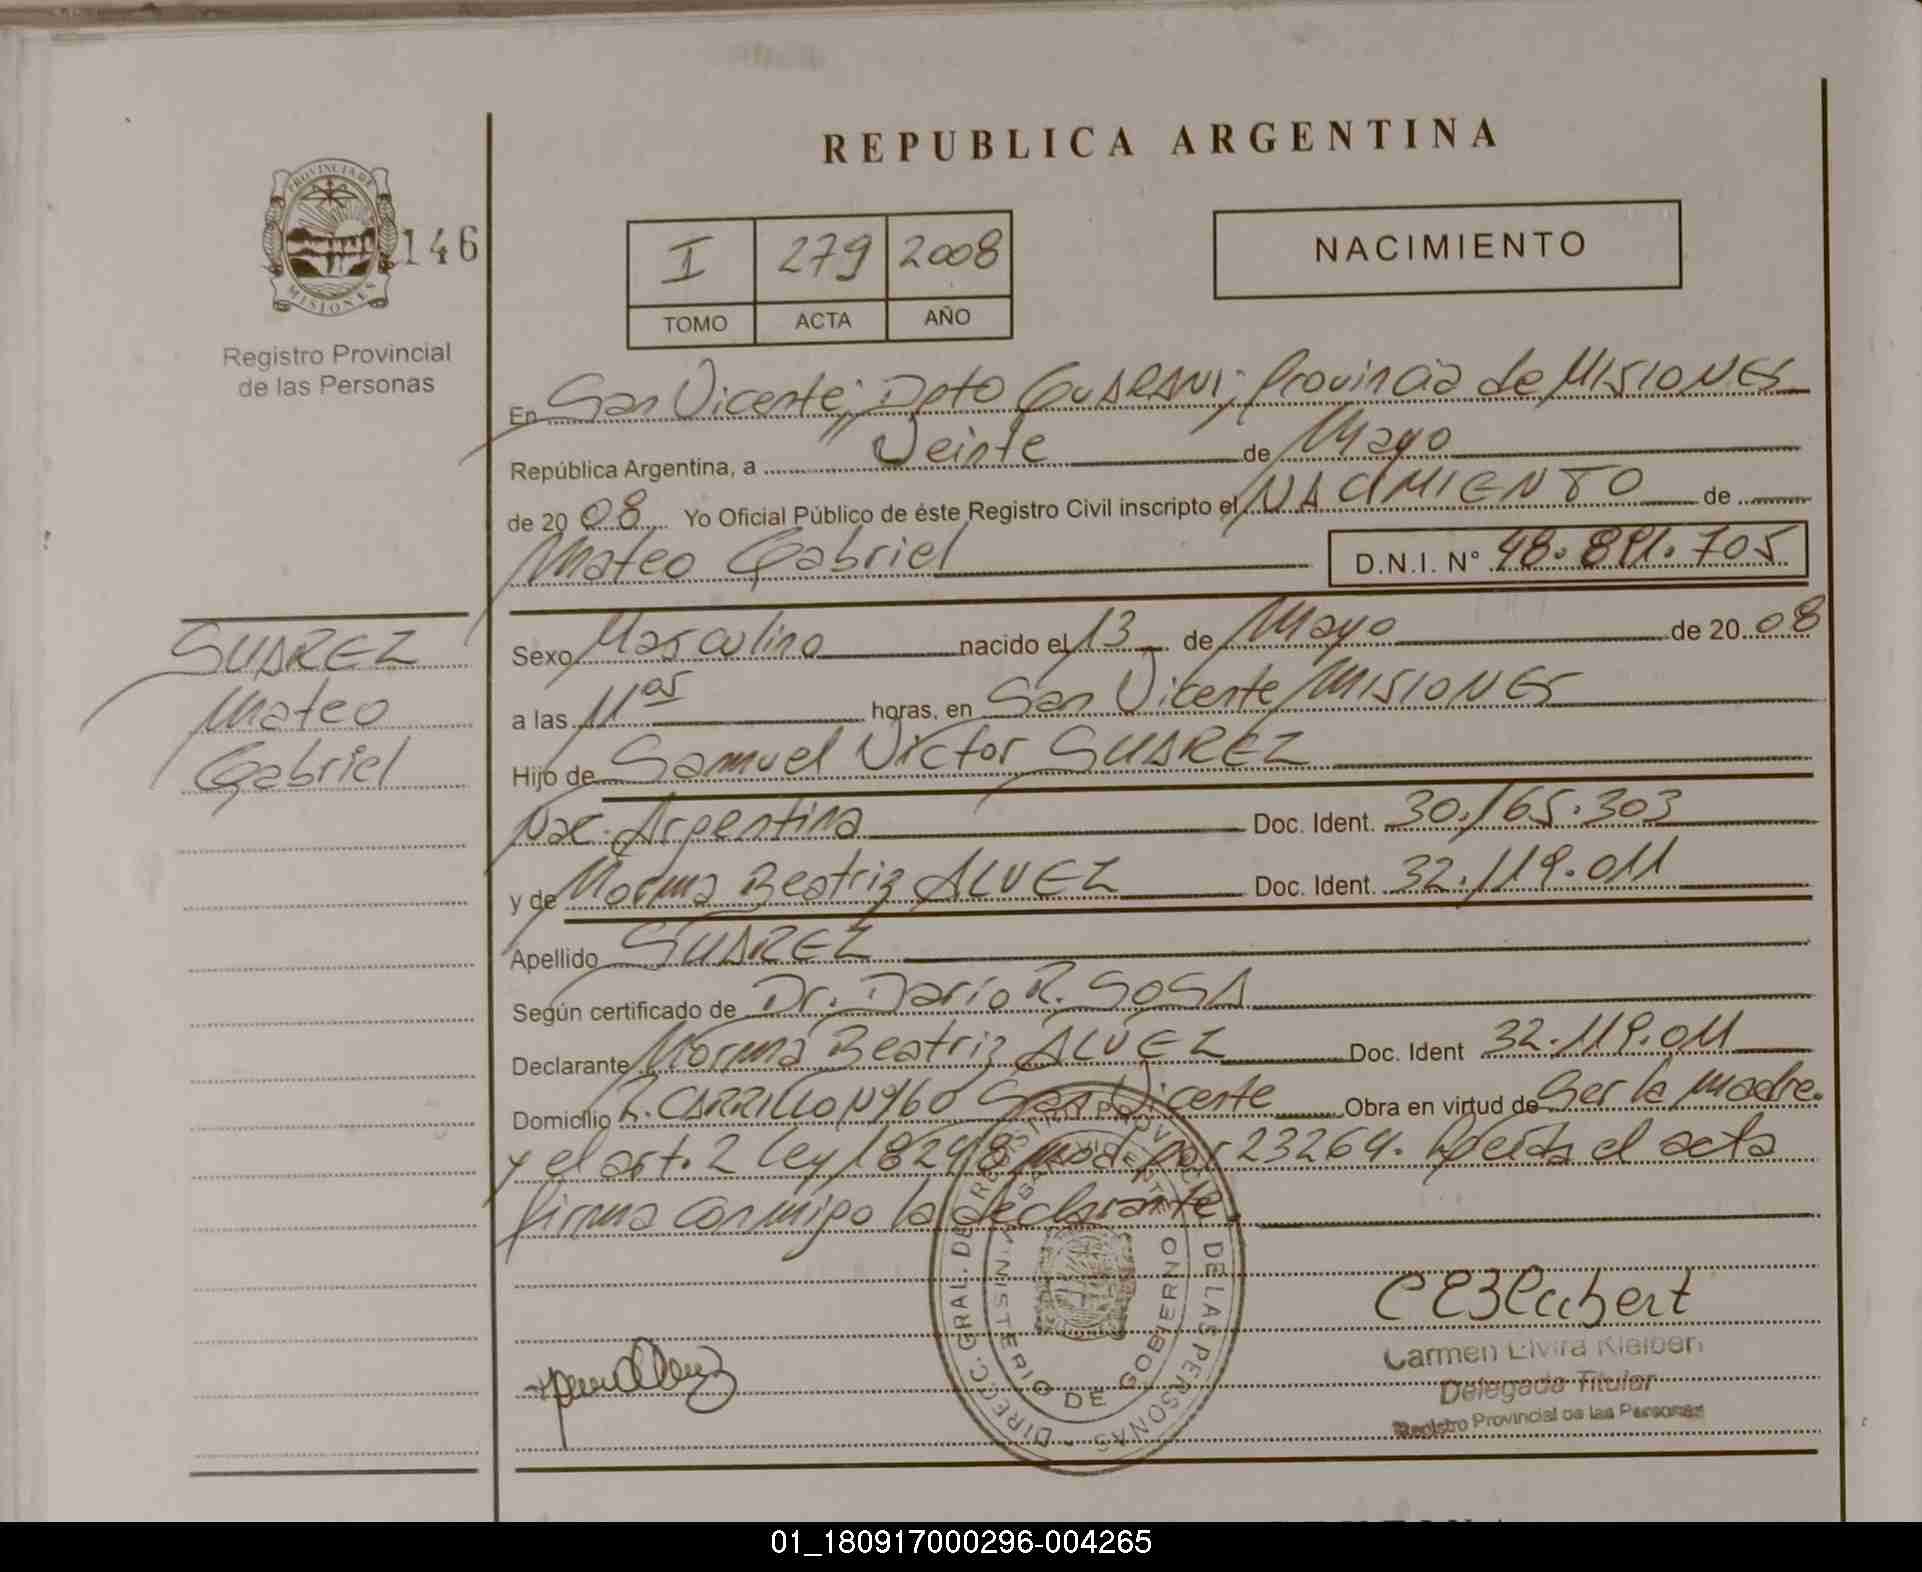 REPUBLICA ARGENTINA
PROVINCIA DE
MISIONES
146
Registro Provincial
de las Personas
I 279 2008
TOMO ACTA AÑO
NACIMIENTO
En San Vicente, Dpto GUARANI, Provincia de MISIONES
República Argentina, a Veinte de Mayo
de 2008 Yo Oficial Público de éste Registro Civil inscripto el NACIMIENTO de
Mateo Gabriel D.N.I. N° 48.891.705
SUAREZ
Mateo
Gabriel
Sexo Masculino nacido el 13 de Mayo de 2008
a las 11 05 horas, en San Vicente MISIONES
Hijo de Samuel Victor SUAREZ
Nac. Argentina Doc. Ident. 30.165.303
y de Norma Beatriz ALVEZ Doc. Ident. 32.119.011
Apellido SUAREZ
Según certificado de Dr. Darío R. SOSA
Declarante Norma Beatriz ALVEZ Doc. Ident 32.119.011
Domicilio R. CARRILLO Nº160 San Vicente Obra en virtud de Ser la madre.
y el art. 2 Ley 18248 mod por 23264. Leída el acta
firma conmigo la declarante.
DIRECC. GRAL. DEL REGISTRO PROVINCIAL DE LAS PERSONAS
SAN VICENTE
MINISTERIO DE GOBIERNO
Carmen Elvira Kleibert
Delegada Titular
Registro Provincial de las Personas
01_180917000296-004265